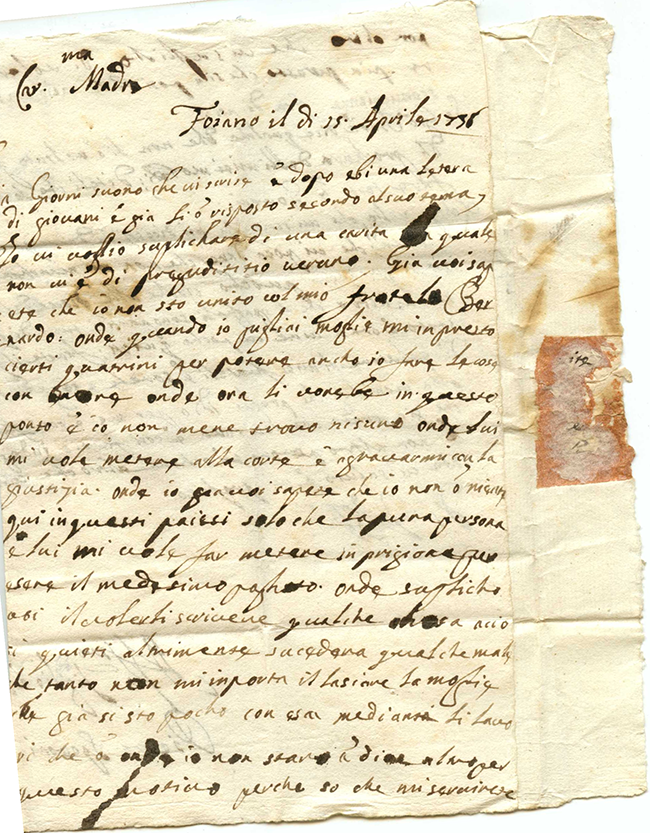 ma
Madre
Foiano il di 15. Aprile 1736
Giorni suono che vi scrise è dopo ebi una letera
di giovani è gia li ò risposto secondo al suo tema
Io vi voglio suplichare di una carita quale
non vi è di pregiuditio veruno. Gia voi sap
ete che io non sto unito col mio fratelo Ber
nardo: onde quando io pigliai moglie mi inpresto
cierti quatrini per potere ancho io fare le cose
con onore onde ora li vorebe in questo
ponto è io non mene trovo nisuno onde lui
mi vole metere alla corte è agravarmi con la
giustizia. onde io gia voi sapete che io non ò niente
qui in questi paiesi solo che la pura persona
è lui mi vole far metere in prigione per
esere il medesimo paghato. onde suplicho
voi il volerli scrivere qualche chosa acio
si quieti altrimente sucedera qualche male
che tanto non mi importa il lasiare la moglie
che gia si sto pocho con esa mediante li lavo
ri che ò onde io non staro à dire altro per
questo motivo perche so che mi servirete